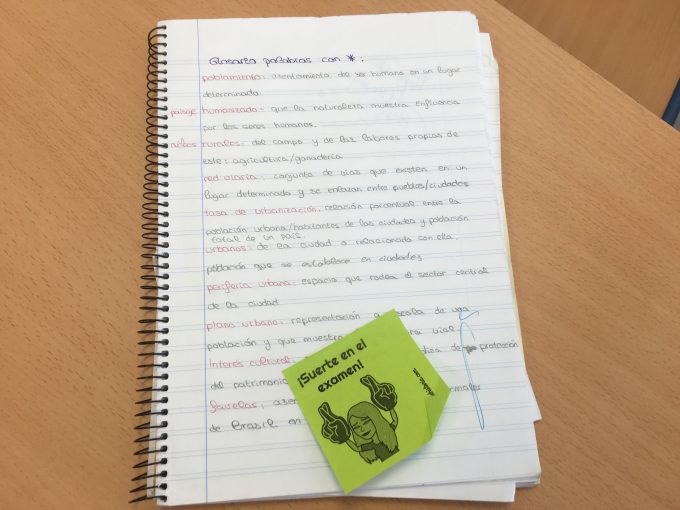 Glosario palabras con *:
poblamiento: asentamiento del ser humano en un lugar
determinado
paisaje humanizado: que la naturaleza muestra influencia
por los seres humanos.
rurales: del campo y de las labores propias de
este: agricultura/ganadería
red viaria: conjunto de vías que existen en un
lugar determinado y se enlazan entre pueblos/ciudades
tasa de urbanización: relación porcentual entre la
población urbana/habitantes de las ciudades y población
total de un país.
urbanos: de la ciudad o relacionado con ella.
población que se establece en ciudades
periferia urbana: espacio que rodea el sector central
de la ciudad
plano urbano: representación a escala de una
población y que muestra vial
Interés cultural: de protección
del patrimonio
favelas:
de Brasil en
¡Suerte en el
examen!